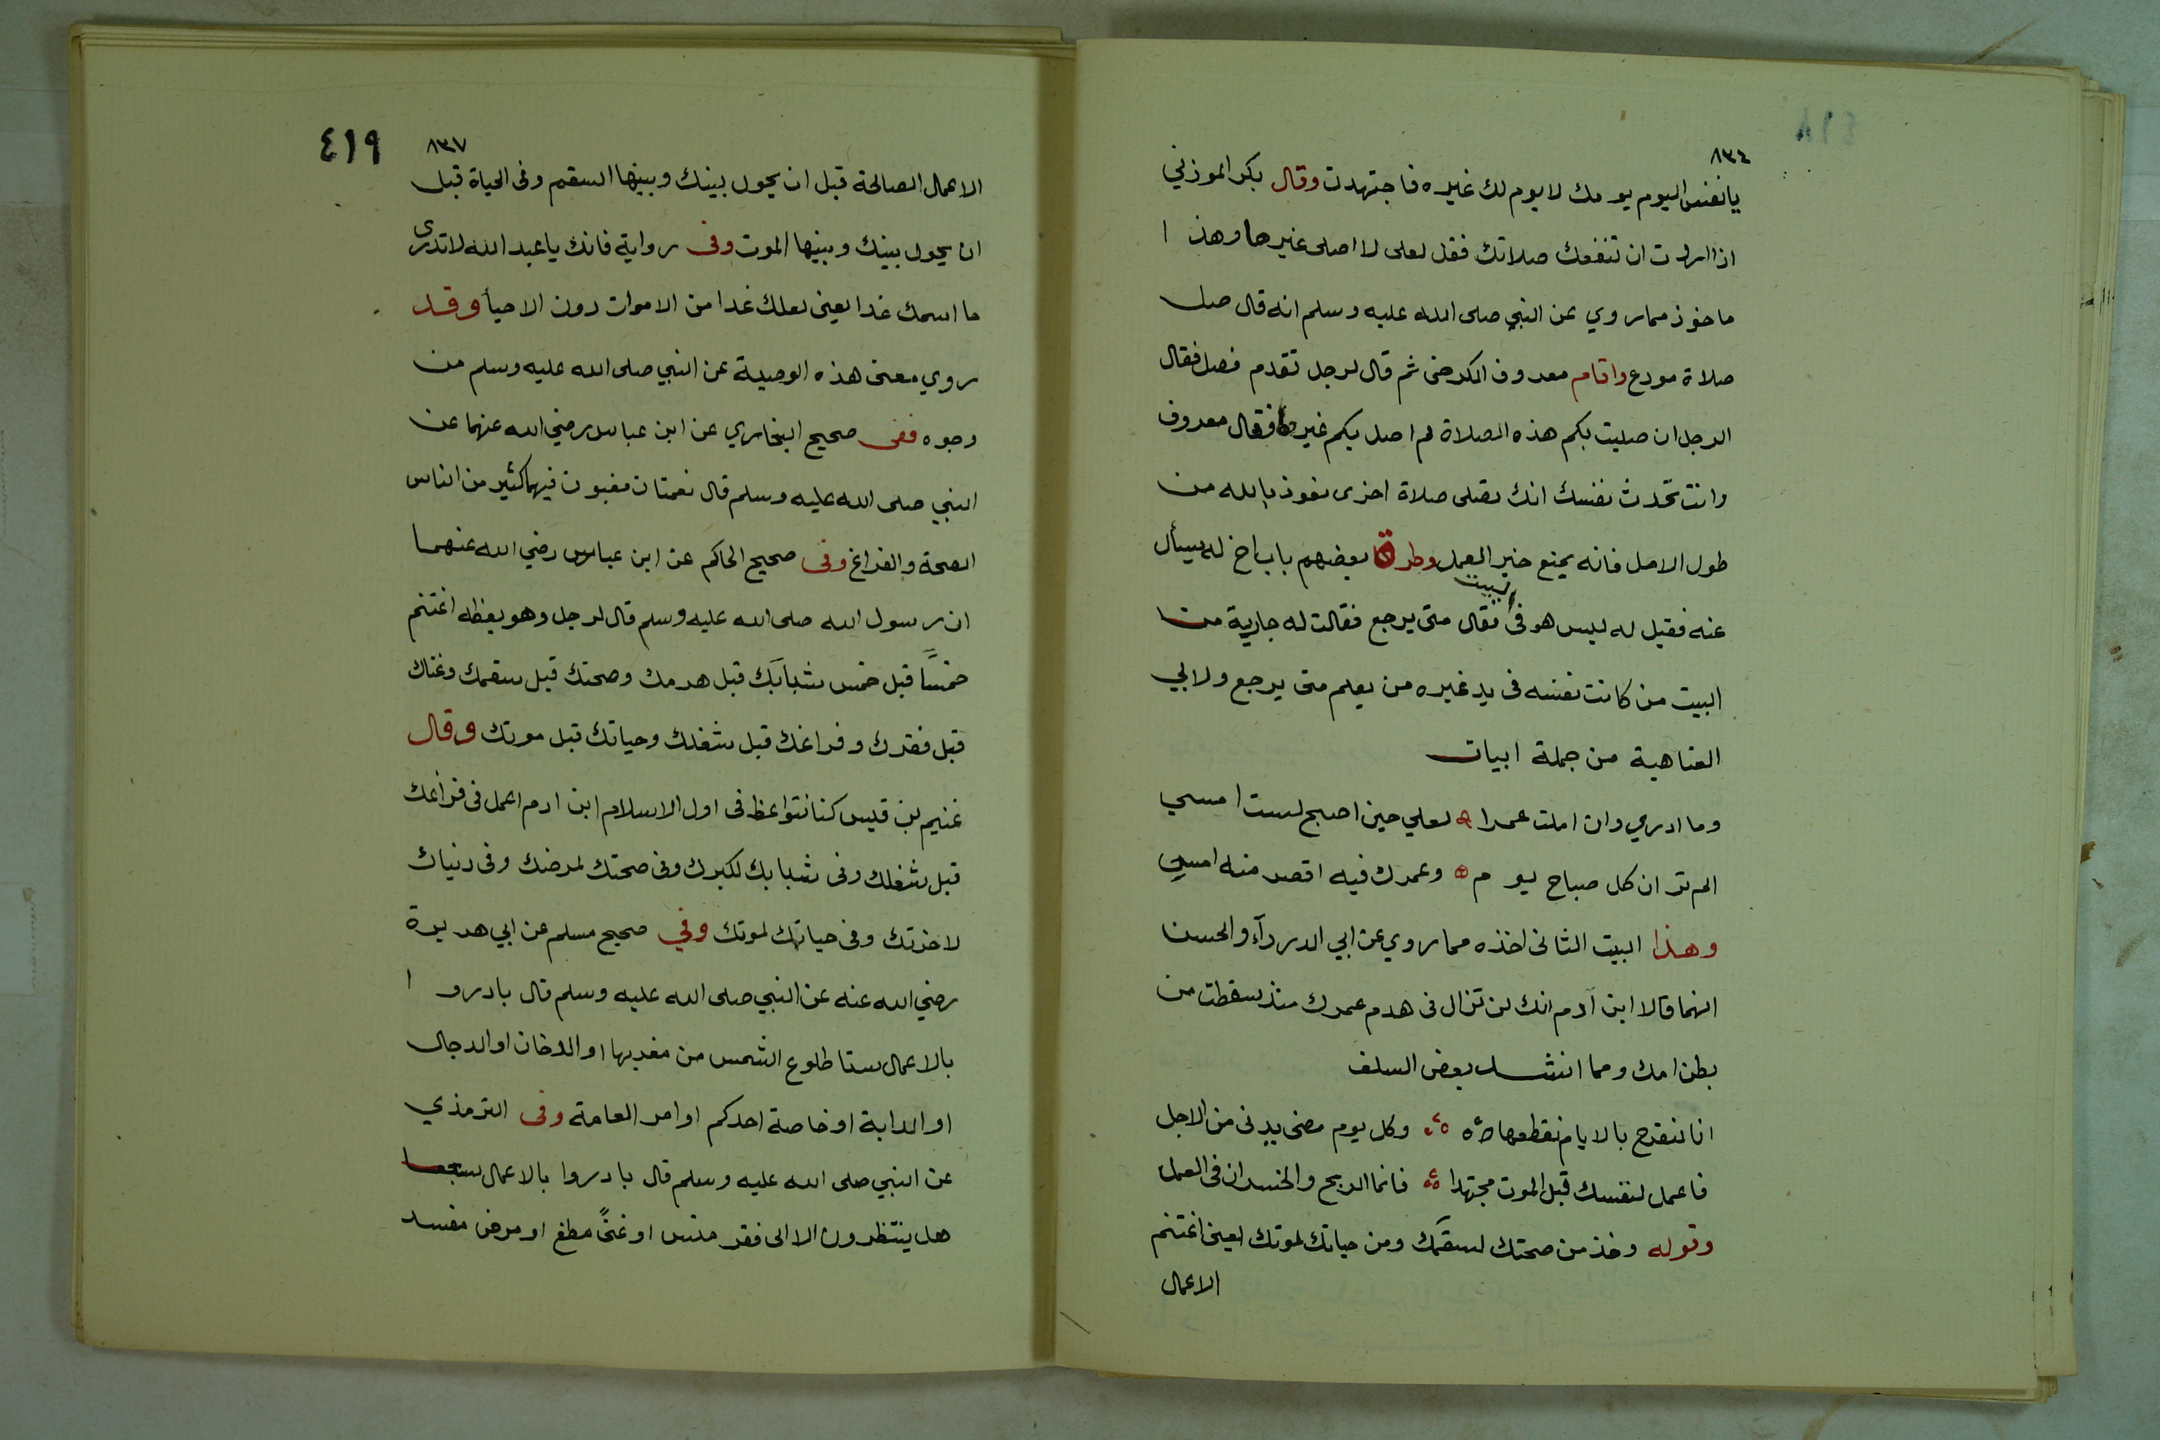 ٨٣٤
يا نفس اليوم يومك لا يوم لك غيره فاجتهدت وقال بكر الموزني
اذا اردت ان تنفعك صلاتك فقل لعلى لا اصلى غيرها وهذا
ماخوذ مما روي عن النبي صلى الله عليه وسلم انه قال صل
صلاة مودع واقام معروف الكرخى ثم قال لرجل تقدم فصل فقال
الرجل ان صليت بكم هذه الصلاة لم اصل بكم غيرها فقال معروف
وانت تحدث نفسك انك تصلى صلاة اخرى نعوذ بالله من
طول الامل فانه يمنع خير العمل وطرق بعضهم باب اخ له يسأل
عنه فقيل له ليس هو فى البيت فقال متى يرجع فقالت له جارية من
البيت من كانت نفسه فى يد غيره من يعلم متى يرجع ولابي
العتاهية من جملة ابيات
وما ادري وان املت عمرا لعلي حين اصبح لست امسي
الم تر ان كل صباح يوم وعمرك فيه اقصر منه امسي
وهذا البيت الثانى اخذه مما روي عن ابي الدردآء والحسن
انهما قالا ابن آدم انك لن تزال فى هدم عمرك منذ سقطت من
بطن امك ومما انشد بعض السلف
انا لنفرح بالايام نقطعها وكل يوم مضى يدنى من الاجل
فاعمل لنفسك قبل الموت مجتهدا فانما الربح والخسران فى العمل
وقوله وخذ من صحتك لسقمك ومن حياتك لموتك يعنى اغتنم
الاعمال
٤١٩ ٨٣٧
الاعمال الصالحة قبل ان يحول بينك وبينها السقم وفى الحياة قبل
ان يحول بينك وبينها الموت وفى رواية فانك يا عبد الله لا تدرى
ما اسمك غدا يعنى لعلك غدا من الاموات دون الاحيآ وقد
روي معنى هذه الوصية عن النبي صلى الله عليه وسلم من
وجوه ففى صحيح البخاري عن ابن عباس رضي الله عنهما عن
النبي صلى الله عليه وسلم قال نعمتان مغبون فيهما كثير من الناس
الصحة والفراغ وفى صحيح الحاكم عن ابن عباس رضي الله عنهما
ان رسول الله صلى الله عليه وسلم قال لرجل وهو يعظه اغتنم
خمسًا قبل خمس شبابك قبل هرمك وصحتك قبل سقمك وغناك
قبل فقرك وفراغك قبل شغلك وحياتك قبل موتك وقال
غنيم بن قيس كنا نتواعظ فى اول الاسلام ابن ادم اعمل فى فراغك
قبل شغلك وفى شبابك لكبرك وفى صحتك لمرضك وفى دنياك
لاخرتك وفى حياتك لموتك وفي صحيح مسلم عن ابي هريرة
رضي الله عنه عن النبي صلى الله عليه وسلم قال بادروا
بالاعمال ستا طلوع الشمس من مغربها او الدخان او الدجال
او الدابة او خاصة احدكم او امر العامة وفى الترمذي
عن النبي صلى الله عليه وسلم قال بادروا بالاعمال سبعا
هل ينتظرون الا الى فقر منس او غنىً مطغ او مرض مفسد